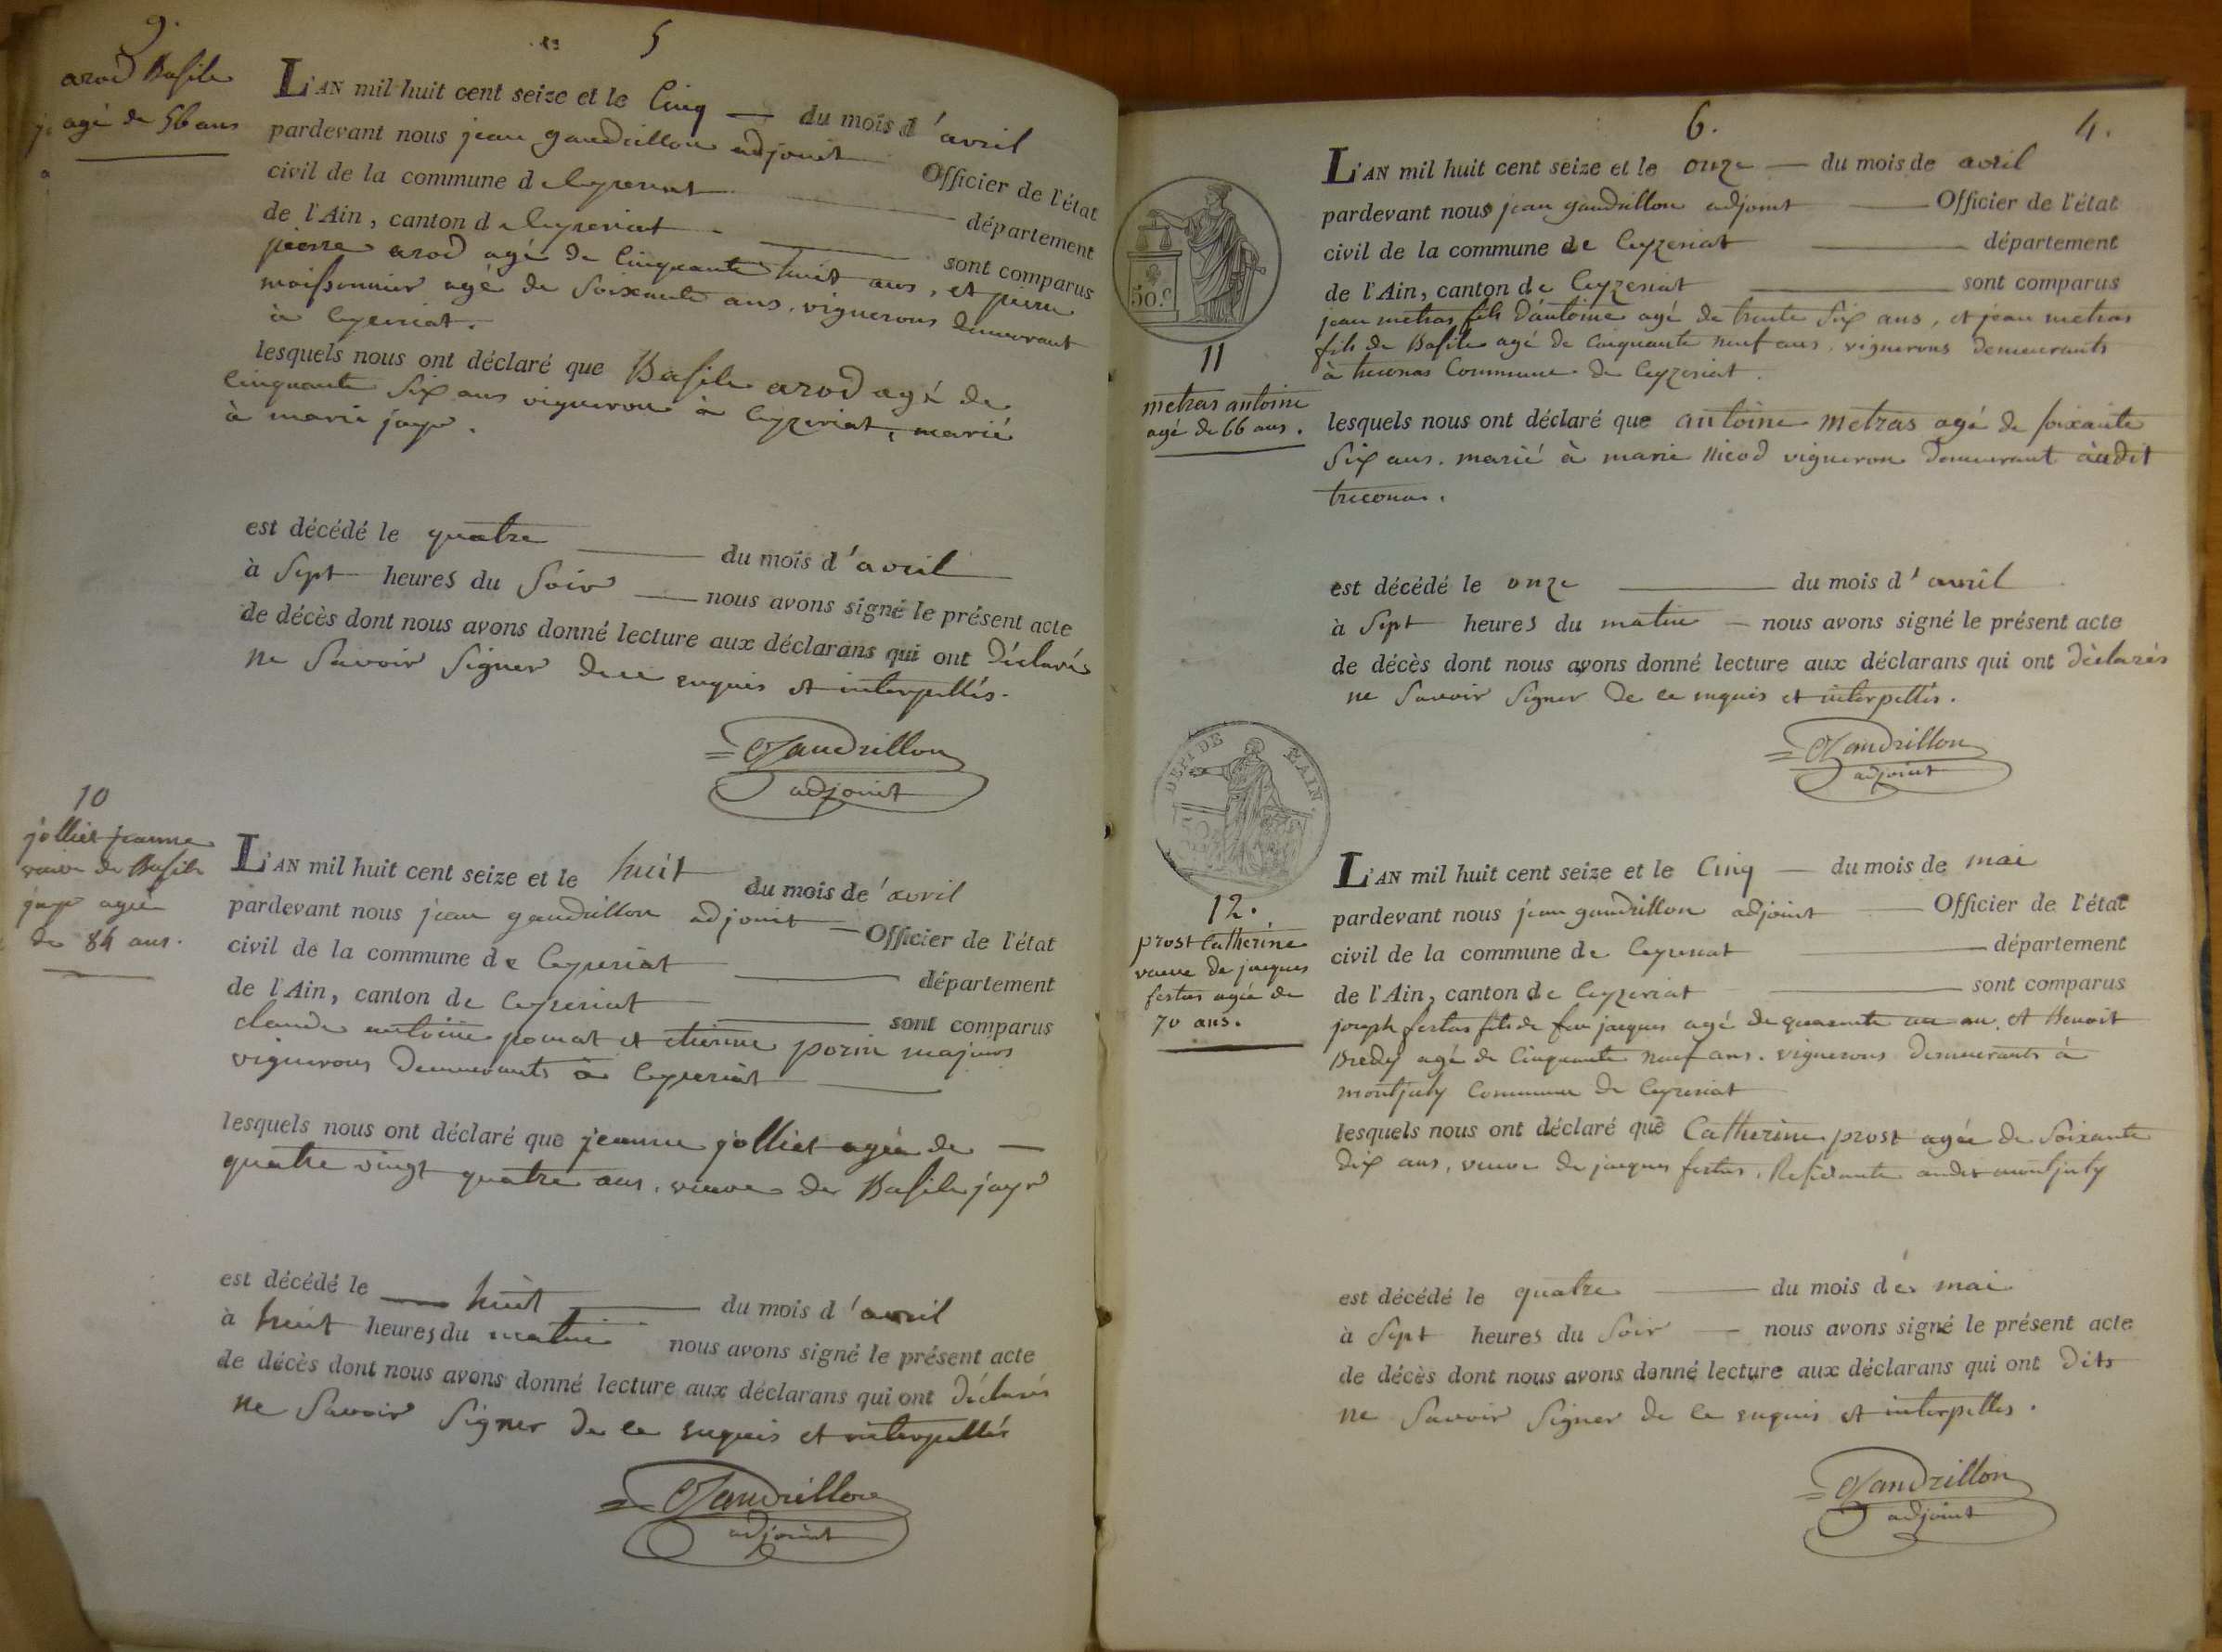 9.
5
arod Basile
agé de 56 ans
L'AN mil huit cent seize et le Cinq — du mois d'avril
pardevant nous jean gaudrillon adjoint Officier de l'état
civil de la commune de Ceyzeriat département
de l'Ain, canton de Ceyzeriat sont comparus
pierre arod agé de Cinquante huit ans, et pierre
moissonnier agé de Soixante ans, vignerons demeurant
à Ceyzeriat.
lesquels nous ont déclaré que Basile arod agé de
Cinquante Six ans vigneron à Ceyzeriat, marié
à marie jayr.
est décédé le quatre du mois d'avril
à Sept heures du Soir — nous avons signé le présent acte
de décès dont nous avons donné lecture aux déclarans qui ont déclarés
ne Savoir Signer de ce enquis et interpellés.
Gaudrillon
adjoint
10
jolliet jeanne
veuve de Basile
jayr agée
de 84 ans.
L'AN mil huit cent seize et le huit du mois de'avril
pardevant nous jean gaudrillon adjoint — Officier de l'état
civil de la commune de Ceyzeriat département
de l'Ain, canton de Ceyzeriat sont comparus
claude antoine et etienne majeurs
vignerons demeurants à Ceyzeriat
lesquels nous ont déclaré que jeanne jolliet agée de —
quatre vingt quatre ans, veuve de Basile jayr
est décédé le huit du mois d'avril
à huit heures du matin nous avons signé le présent acte
de décès dont nous avons donné lecture aux déclarans qui ont déclarés
ne Savoir Signer de ce enquis et interpellés
Gaudrillon
adjoint
6.
4.
50.c
11
metras antoine
agé de 66 ans.
L'AN mil huit cent seize et le onze — du mois de avril
pardevant nous jean gaudrillon adjoint — Officier de l'état
civil de la commune de Ceyzeriat département
de l'Ain, canton de Ceyzeriat sont comparus
jean metras fils d'antoine agé de trente Six ans, et jean metras
fils de Basile agé de Cinquante neuf ans, vignerons demeurants
à treconas Commune de Ceyzeriat.
lesquels nous ont déclaré que antoine metras agé de soixante
Six ans. marié à marie nicod vigneron demeurant audit
treconas.
est décédé le onze du mois d'avril
à Sept heures du matin — nous avons signé le présent acte
de décès dont nous avons donné lecture aux déclarans qui ont déclarés
ne Savoir Signer de ce enquis et interpellés.
Gaudrillon
adjoint
DEPT DE L'AIN.
12.
prost Catherine
veuve de jacques
festas agée de
70 ans.
L'AN mil huit cent seize et le Cinq — du mois de mai
pardevant nous jean gaudrillon adjoint — Officier de l'état
civil de la commune de Ceyzeriat département
de l'Ain, canton de Ceyzeriat sont comparus
joseph festas fils de feu jacques agé de quarante un an, et Benoit
Bredy agé de Cinquante neuf ans, vignerons demeurants à
montjuly Commune de Ceyzeriat
lesquels nous ont déclaré que Catherine prost agée de Soixante
dix ans, veuve de jacques festas, Residante audit montjuly
est décédé le quatre du mois de mai
à Sept heures du Soir — nous avons signé le présent acte
de décès dont nous avons donné lecture aux déclarans qui ont dits
ne Savoir Signer de ce enquis et interpellés.
Gaudrillon
adjoint